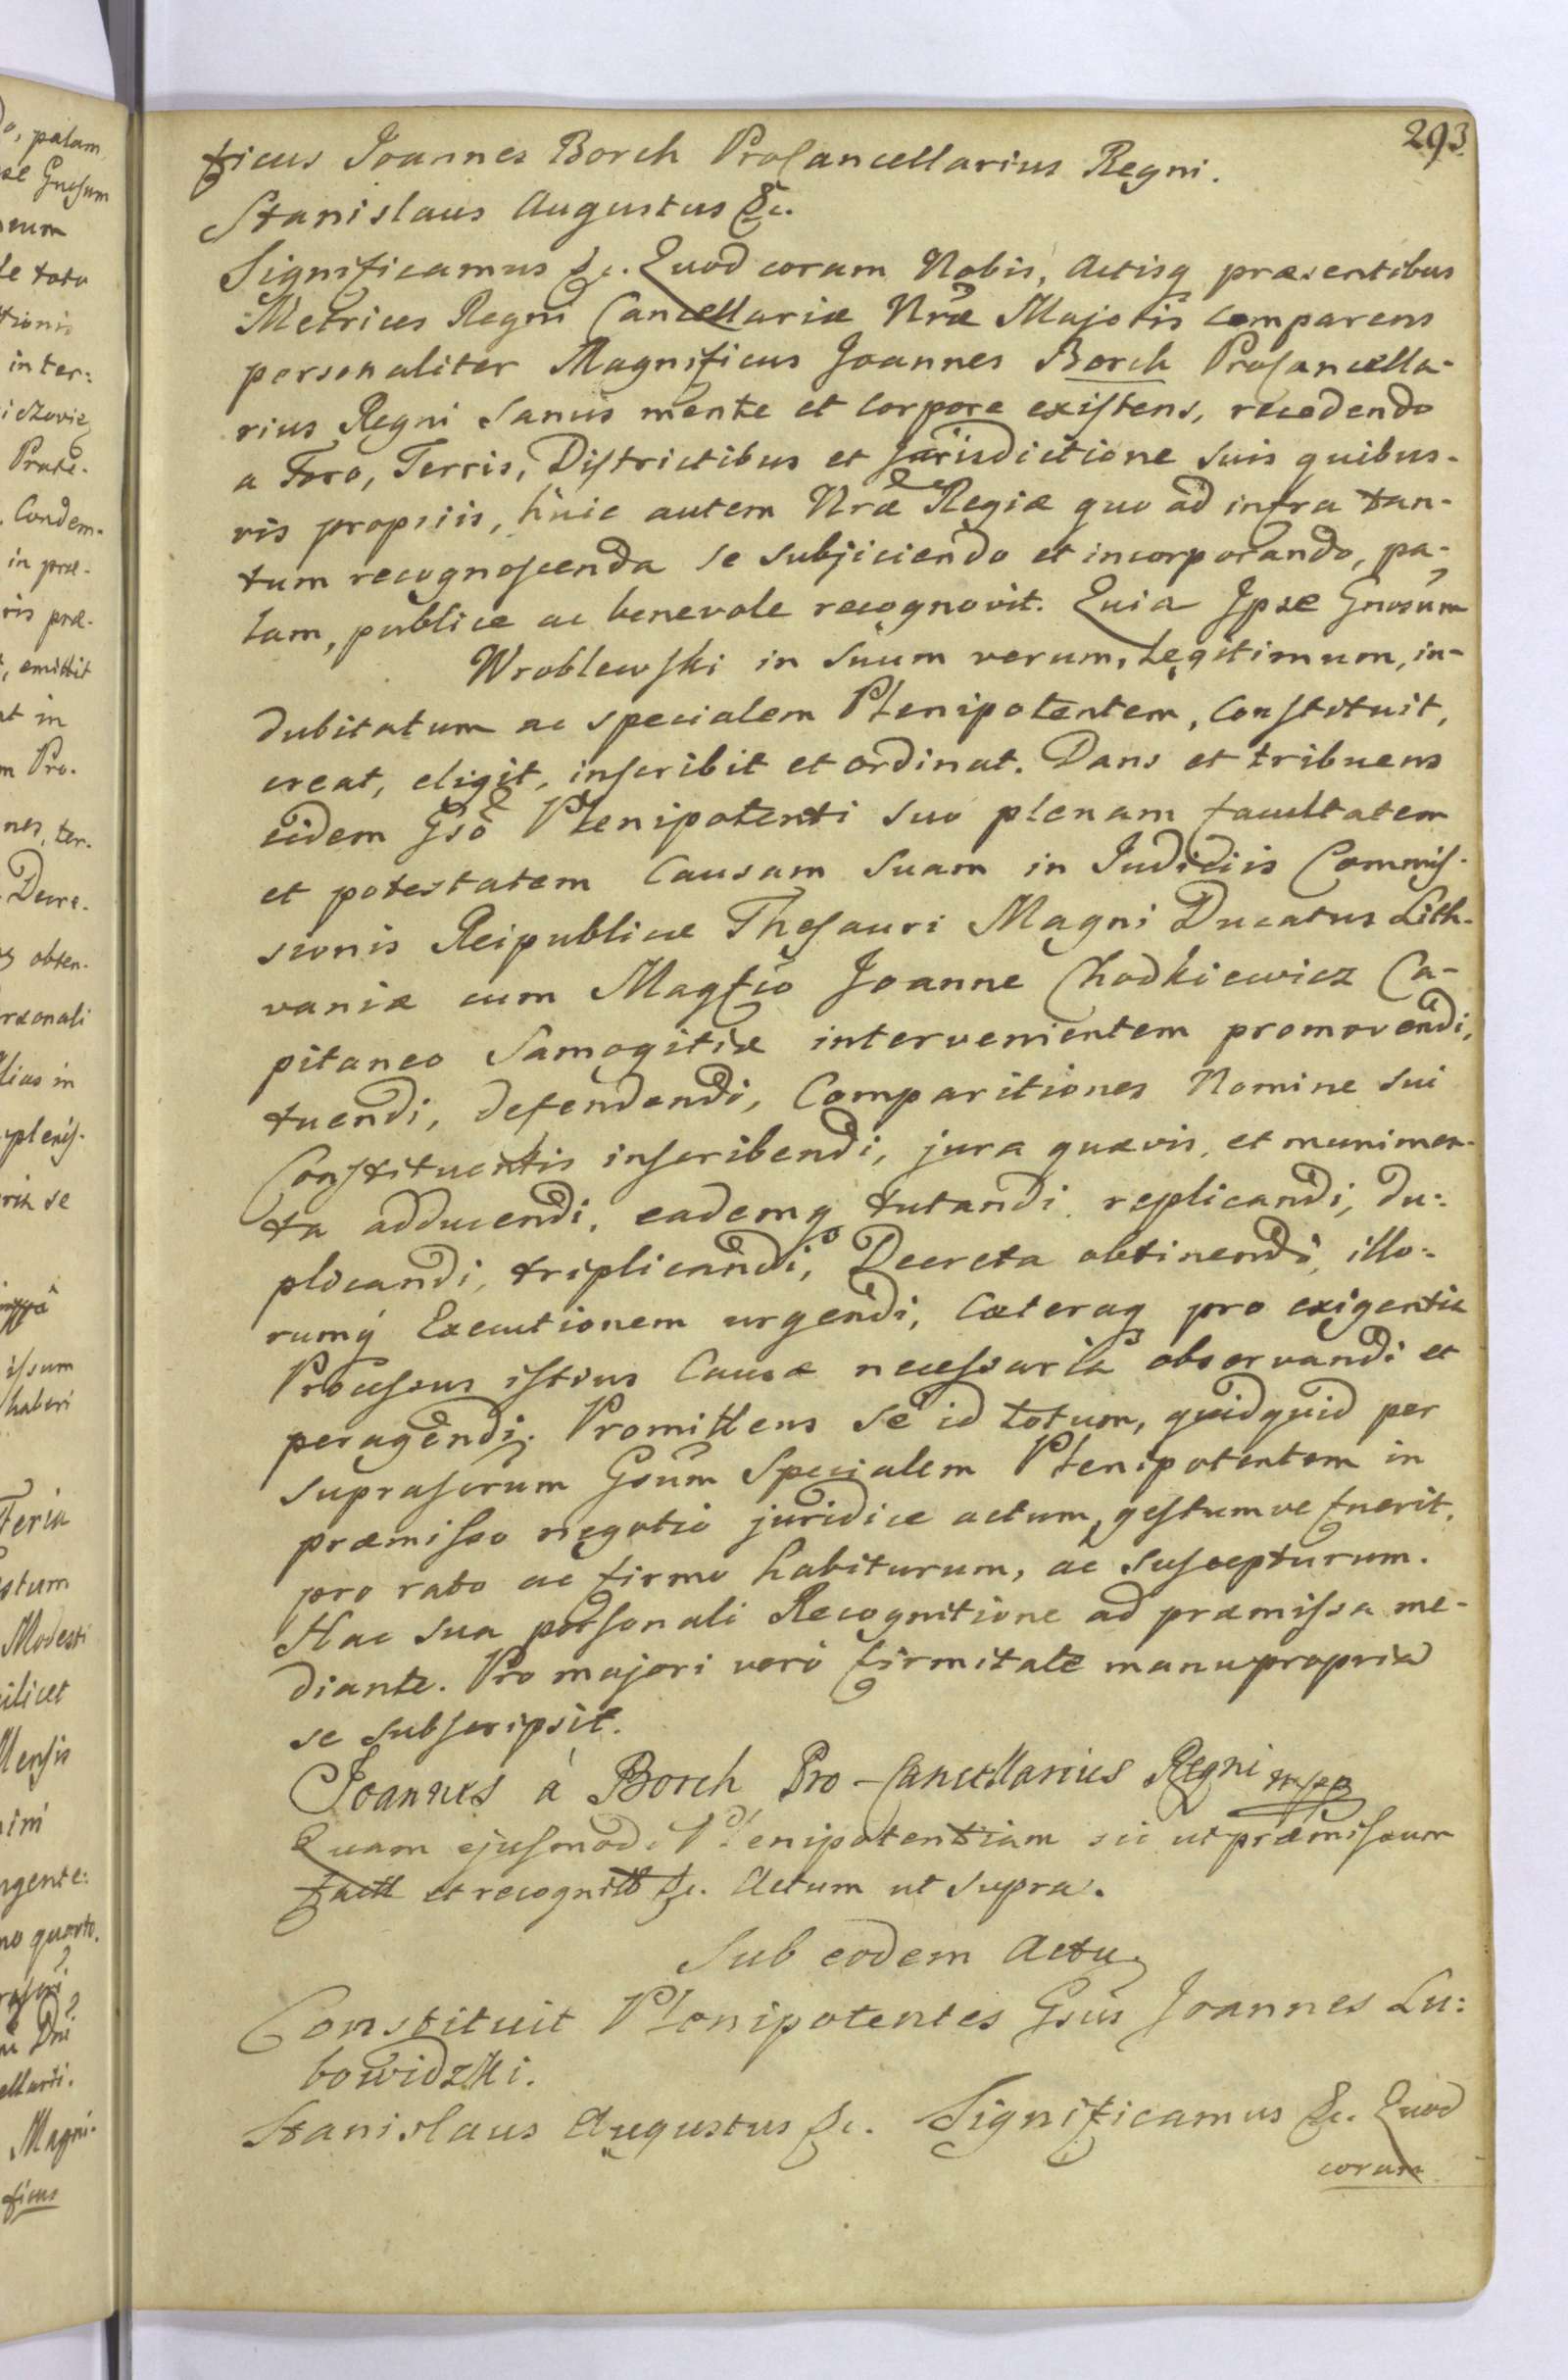 293.
ficus Joannes Borch ProCancellarius Regni.
Stanislaus Augustus &c.
Significamus &c. Quod coram Nobis, Actisq præsentibus
Metrices Regni Cancellariæ Nræ Majoris comparens
personaliter Magnificus Joannes Borch ProCancella-
rius Regni sanus mente et corpore existens, recedendo
a Foro, Terris, Districtibus et Jurisdictione suis quibus-
vis propriis, huic autem Nræ Regiæ quo ad infra tan-
tum recognoscenda se subjiciendo et incorporando, pa-
lam, publice ac benevole recognovit. Quia Ipse Gnosum
Wroblewski in suum verum, legitimum, in-
dubitatum ac specialem Plenipotentem, constituit,
creat, eligit, inscribit et ordinat. Dans et tribuens
eidem Gso Plenipotenti suo plenam facultatem
et potestatem Causam suam in Judiciis Commis-
sionis Reipublicæ Thesauri Magni Ducatus Lith-
vaniæ cum Magfco Joanne Chodkiewicz Ca-
pitaneo Samogitiæ intervenientem promovendi,
tuendi, defendendi, Comparitiones Nomine sui
Constituentis inscribendi, jura quævis, et munimen-
ta adducendi, eademq tutandi replicandi, du:
plicandi, triplicandi, Decreta obtinendi, illo:
rumq Executionem urgendi, Cæteraq pro exigentia
Processus istius Causæ necessaria observandi et
peragendi. Promittens se id totum, quidquid per
suprascrum Gsum Specialem Plenipotentem in
præmisso negotio juridice actum, gestumve fuerit,
pro rato ac firmo habiturum, ac suscepturum.
Hac sua personali Recognitione ad præmissa me-
diante. Pro majori vero firmitate manupropria
se subscripsit.
Joannes à Borch Pro-Cancellarius Regni mpp
Quam ejusmodi Plenipotentiam sic ut præmissum
fact et recognit &c. Actum ut supra.
Sub eodem Actu
Constituit Plenipotentes Gsus Joannes Lu:
bowidzki.
Stanislaus Augustus &c. Significamus &c. Quod
coram